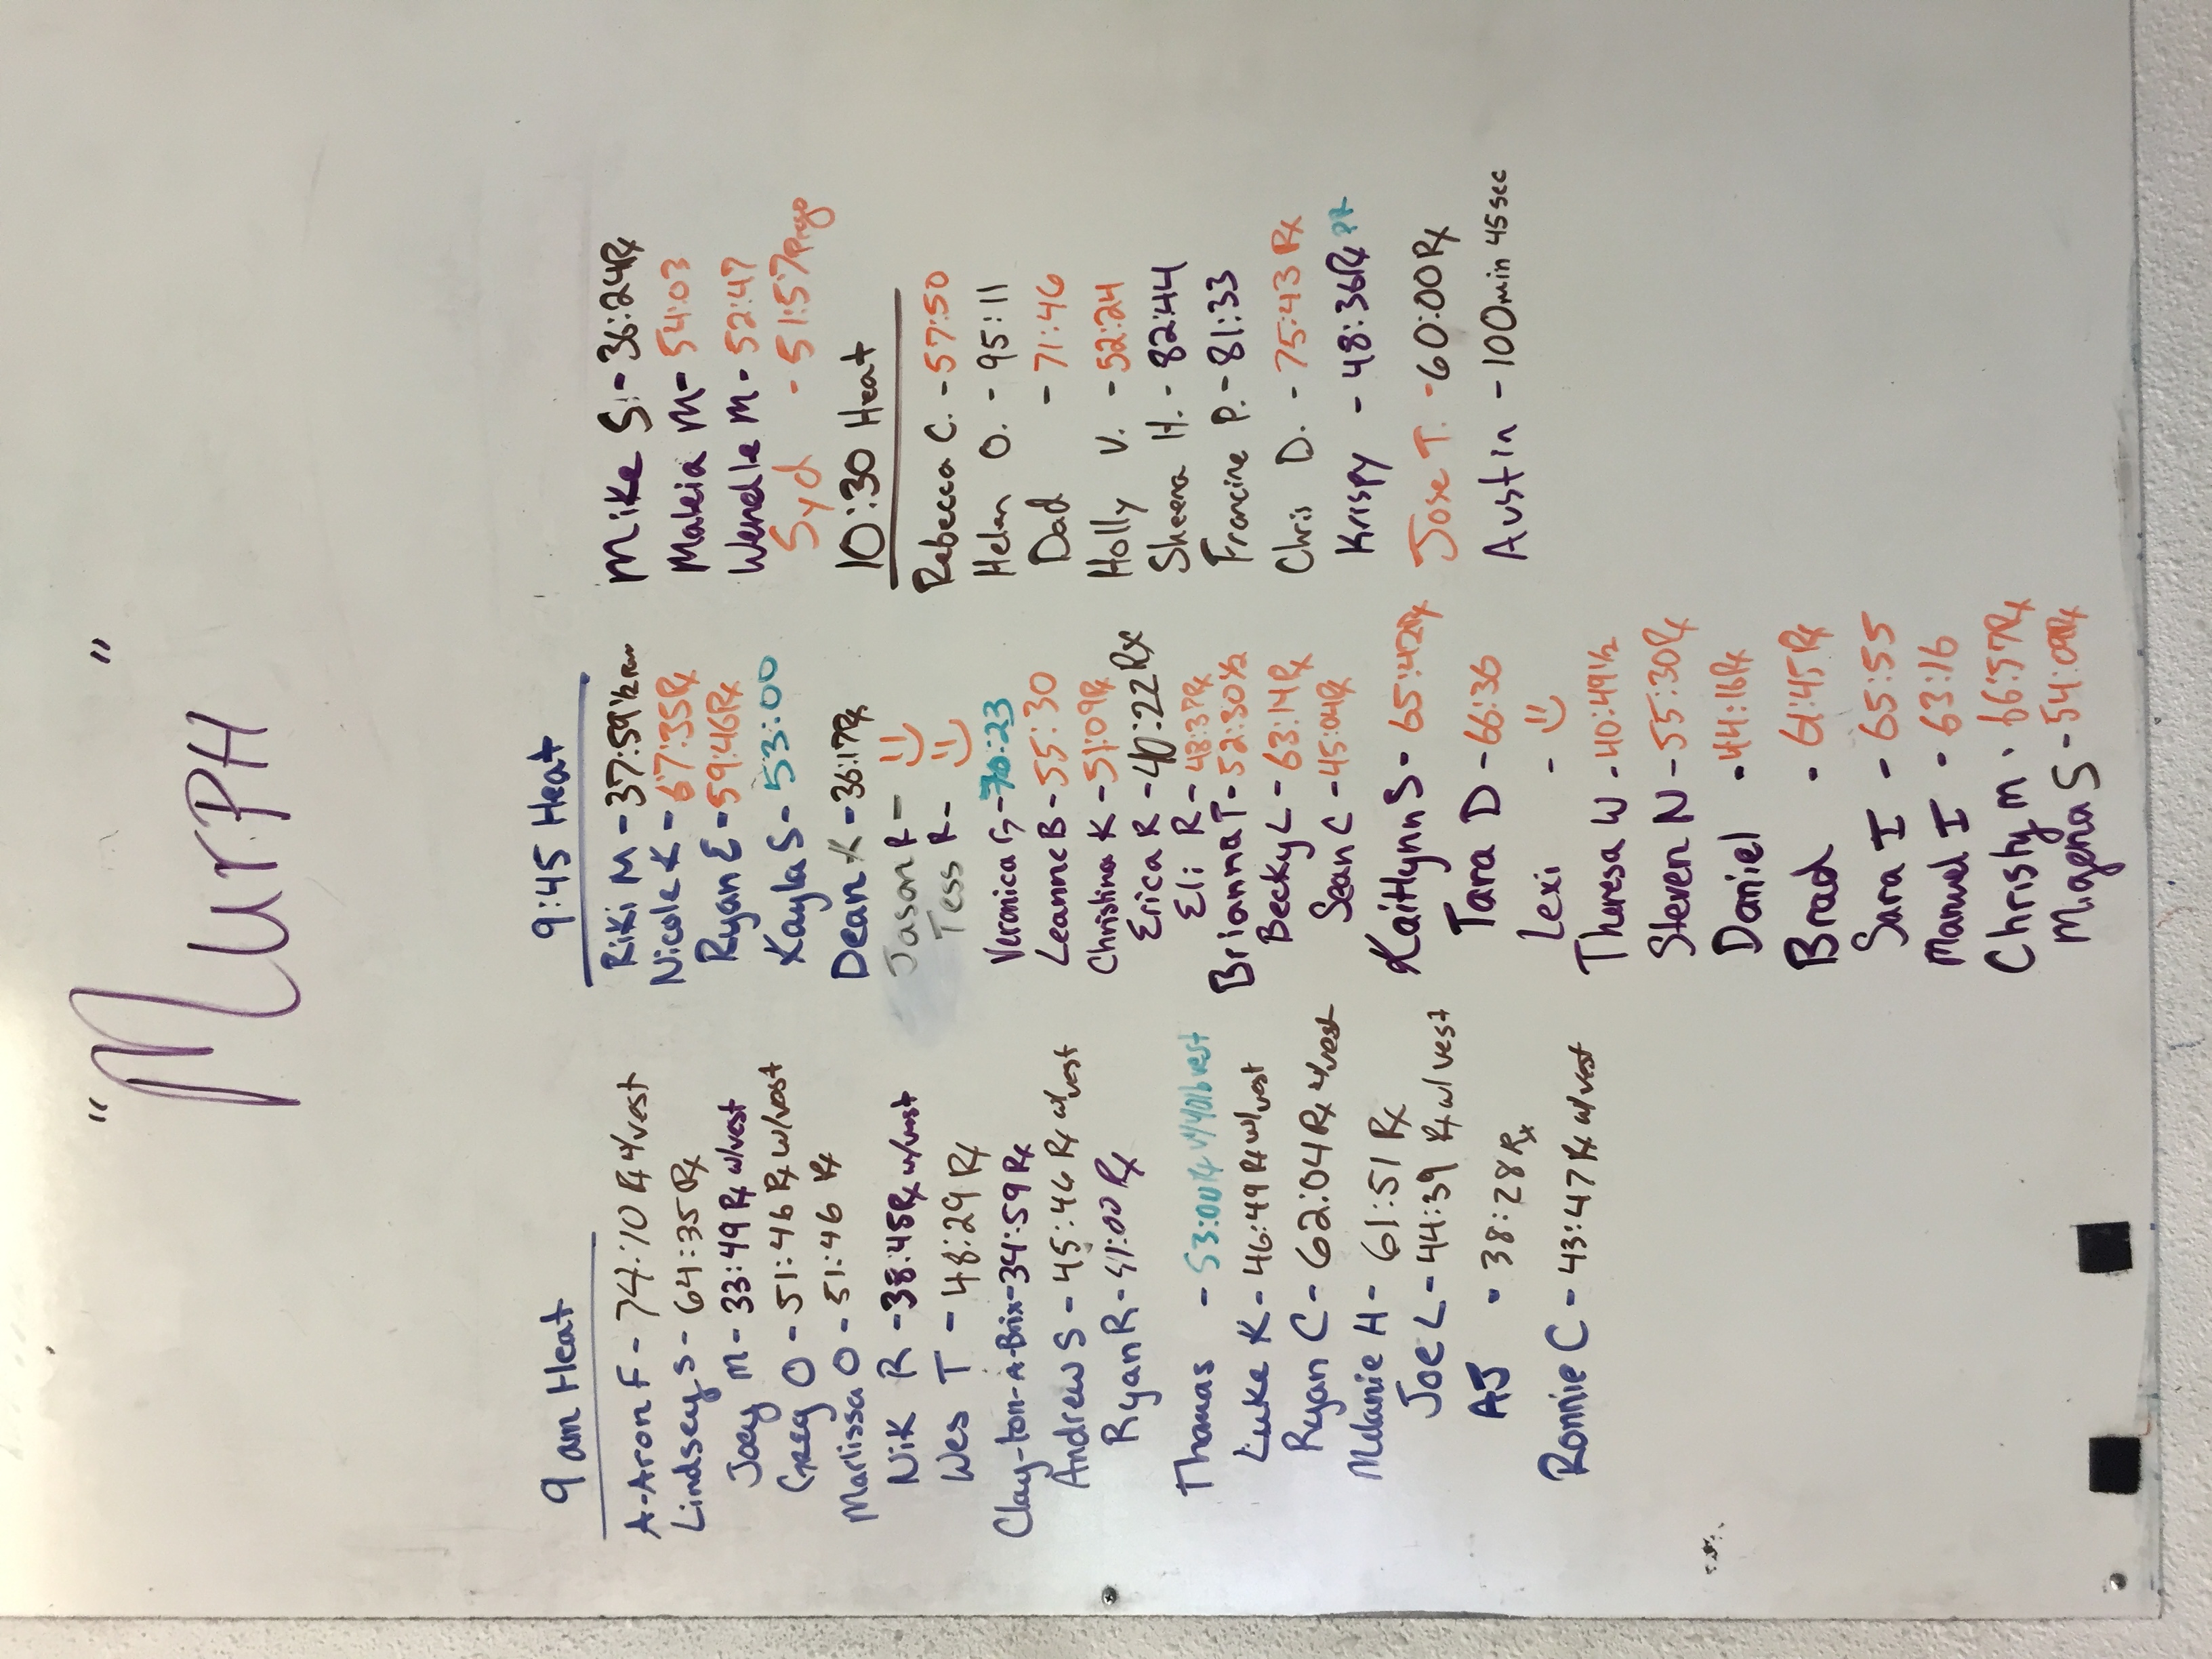 "MurPH"
9 am Heat
A-Aron F - 74:10 Rx w/vest
Lindsey S - 64:35 Rx
Joey M - 33:49 Rx w/vest
Greg O - 51:46 Rx w/vest
Marlissa O - 51:46 Rx
Nik R - 38:45 Rx w/vest
Wes T - 48:29 Rx
Clay-ton-A-Brix - 34:59 Rx
Andrew S - 45:46 Rx w/vest
Ryan R - 51:00 Rx
Thomas - 53:00 Rx w/40lb vest
Luke K - 46:49 Rx w/vest
Ryan C - 62:04 Rx w/vest
Melanie H - 61:51 Rx
Joe L - 44:39 Rx w/vest
AJ - 38:28 Rx
Ronnie C - 43:47 Rx w/vest
9:45 Heat
Riki M - 37:59 1/2 Run
Nicole K - 67:35 Rx
Ryan E - 59:46 Rx
Kayla S - 53:00
Dean K - 36:17 Rx
Jason R - :)
Tess R - :)
Veronica G - 70:23
Leanne B - 55:30
Christina K - 51:09 Rx
Erica R - 40:22 Rx
Eli R - 48:37 Rx
Brianna T - 52:30 1/2
Becky L - 63:14 Rx
Sean C - 45:04 Rx
Kaitlynn S - 65:42 Rx
Tara D - 66:36
Lexi - :)
Theresa W - 40:49 1/2
Steven N - 55:30 Rx
Daniel - 44:16 Rx
Brad - 61:45 Rx
Sara I - 65:55
Manuel I - 63:16
Christy M - 66:57 Rx
Migena S - 54:09 Rx
Mike S. - 36:24 Rx
Makia M - 54:03
Wendle M - 52:47
Syd - 51:57 Prego
10:30 Heat
Rebecca C. - 57:50
Helen O. - 95:11
Dad - 71:46
Holly V. - 52:24
Sheena H. - 82:44
Francine P. - 81:33
Chris D. - 75:43 Rx
Krispy - 48:36 Rx PR
Jose T. - 60:00 Rx
Austin - 100min 45sec